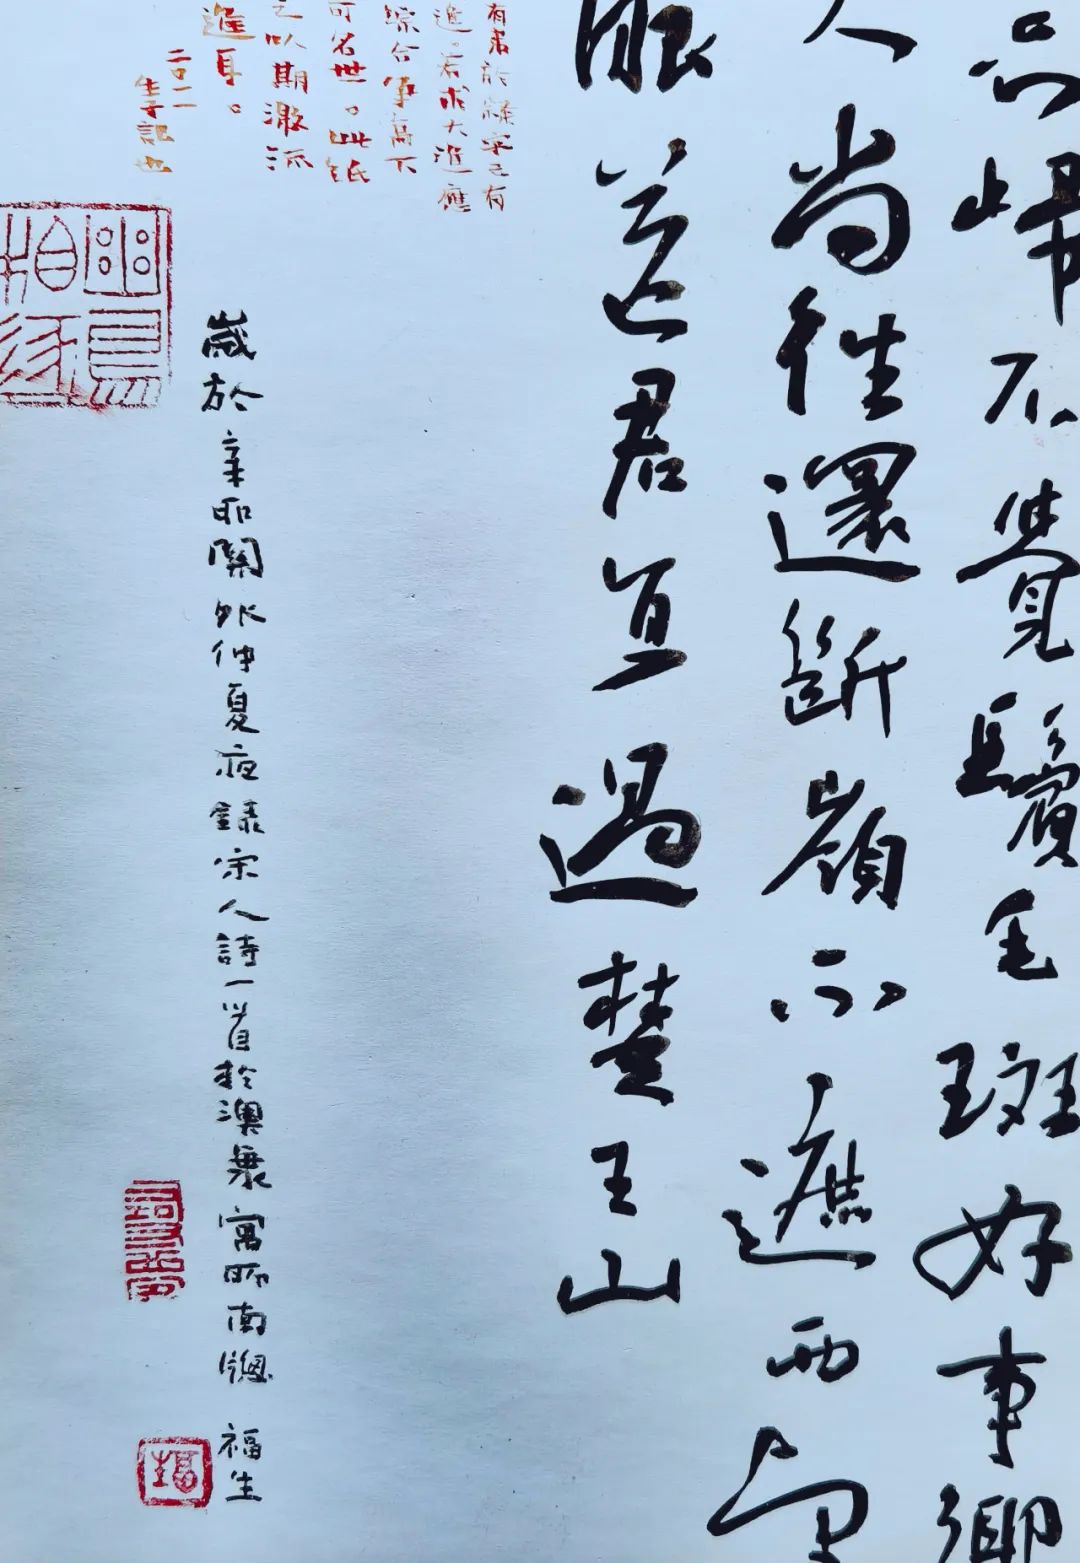 而歸不覺鬢毛斑好事鄉
人尚往還斷嶺不遮西望
眼送君直過楚王山
有者於
進。若求大進應
綜合筆高下
可名世。此紙
之以期激流
進耳。
二〇二一
生記也
歲於辛卯關外仲夏夜錄宋人詩一首於澳寓所南窗 福生
福